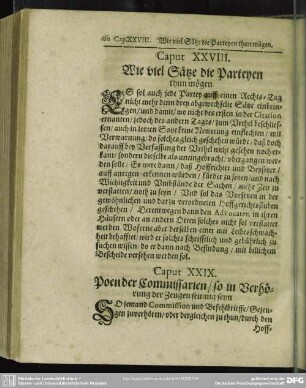 160 Cap.XXVIII. Wie viel Sätze die Parteyen thun mögen.
Caput XXVIII.
Wie viel Sätze die Parteyen
thun mögen.
ES sol auch jede Partey auff einen Rechts-Tag
nicht mehr dann drey abgewechselte Sätze einbrin-
gen / und damit / wo nicht des ersten in der Citation
ernanten / jedoch des andern Tages / zum Urthel beschlies-
sen / auch in letzten Satz keine Newerung einflechten / mit
Verwarnung / do solches gleich geschehen würde / daß doch
darauff bey Verfassung der Urthel nicht gesehen noch er-
kant / sondern dieselbe als uneingebracht / übergangen wer-
den solle / Es were dann / daß Hoffrichter und Beysitzer /
auff anregen erkennen würden / fürder zu setzen / und nach
Wichtigkeit und Umbstände der Sachen / mehr Zeit zu
verstatten / noth zu sein / Und sol das Vorsetzen in der
gewöhnlichen und darzu verordneten Hoffgerichtsstuben
geschehen / Derentwegen dann den Advocaten in ihren
Häusern oder an andern Orten solches nicht sol verstattet
werden. Woferne aber derselben einer mit Leibesschwach-
heit behafftet / wird er solches schrifftlich und gebührlich zu
suchen wissen / do er dann nach Befindung / mit billichem
Bescheide versehen werden sol.
Caput XXIX.
Poen der Commissarien / so in Verhö-
rung der Zeugen seumig seyn
SO jemand Commission und Befehlbrieffe / Gezeu-
gen zuverhören / oder dergleichen zu thun / durch den
Hoff-